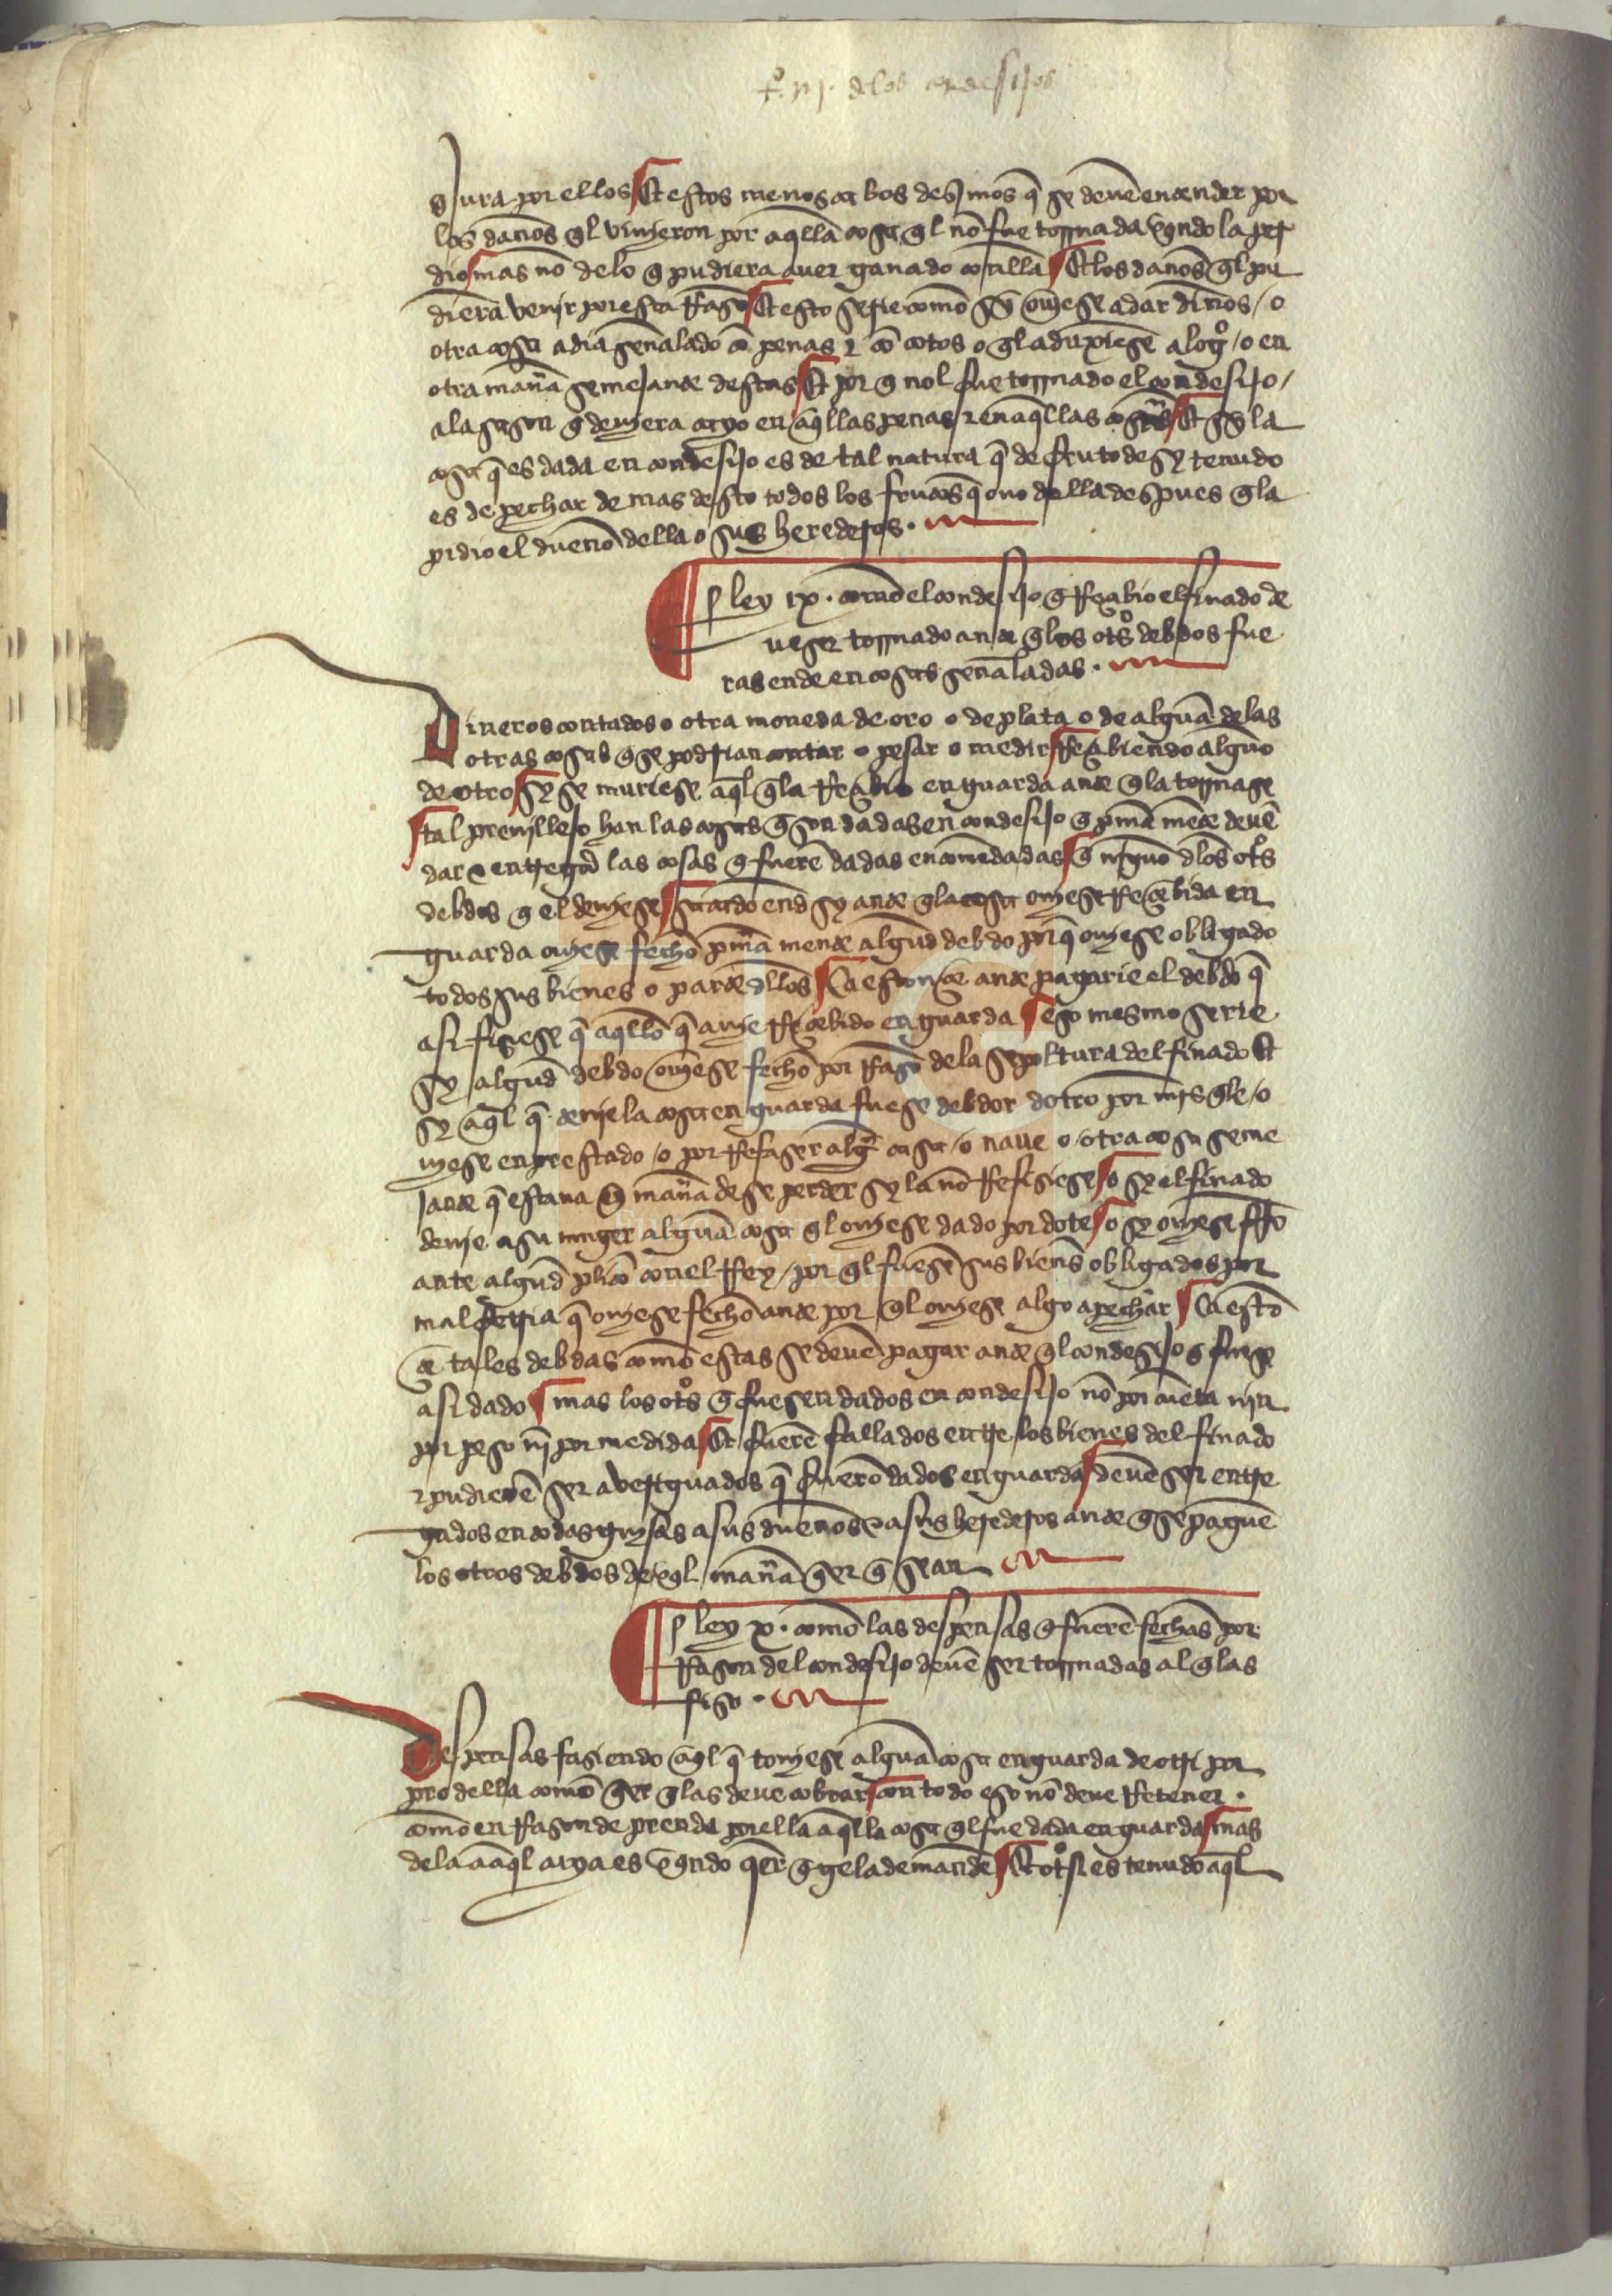 t.º iij. delos condesijos
q̃ jura por ellos Et estos menoscabos desimos q̃ se deuẽ entender por
los daños q̃l vinjeron por aq̃lla cosa q̃l nõ fue tornada qndo la per
dio mas nõ delo q̃ pudiera auer ganado con ella Et los daños q̃l pu
dierã venjr por esta Rasõ Et esto serie como sy oujese a dar dineros / o
otra cosa a dia señalado cõ penas & cõ cotos o q̃l aduxiese a logº / o en
otra manã semejante destas Et por q̃ nol fue tornado el condesijo /
ala sason q̃ deujera cayo en aq̃llas penas & en aq̃llas cosas Et sy la
cosa q̃ es dada en condesijo es de tal natura q̃ de fruto de sy tenudo
es de pechar de mas desto todos los frutos q̃ ouo della despues q̃ la
pidio el dueño della o sus herederos .
ley ix . como el condesijo q̃ Resçibio el finado de
ue ser tornado ante q̃ los otºs debdos fue
ras ende en cosas señaladas .
Dineros contados o otra moneda de oro o de plata o de algunã delas
otras cosas q̃ se podrian contar o pesar o medir Resçibiendo alguno
de otro sy se muriese aq̃l q̃ la Resçibio en guarda ante q̃ la tornase
tal preuillejo han las cosas q̃ son dadas en condesijo q̃ pmã mẽte deuẽ
dar & entregar las cosas q̃ fuerẽ dadas en comẽdadas q̃ njguno dlos otºs
debdos q̃ el deujese sacado end sy ante q̃ la cosa oujese Resçebida en
guarda oujese fecho pmã mente algud debdo por q̃ oujese obligado
todos sus bienes o parte dllos Ca estonçe ante pagarie el debdo q̃
asi fisese q̃ aq̃llo q̃ auje Resçebido en guarda eso mesmo serie
sy algud debdo oujese fecho por Rasõ dela sepoltura del finado Et
sy aq̃l q̃ tenje la cosa en guarda fuese debdor dotro por mrs q̃ le / o
ujese enprestado / o por Refaser algª casa / o naue o / otra cosa seme
jante q̃ estaua en manã de se perder sy la nõ Refisiese o sy el finado
deuje a su muger algunã cosa q̃l oujese dado por dote o sy oujese fecho
ante algud plito con el Rey / por q̃l fuesẽ sus bienẽs obligados por
mal fetria q̃ oujese fecho ante por q̃l oujese algo a pechar Ca estõ
çe tales debdas como estas se deuẽ pagar ante q̃l condesijo q̃ fuese
asi dado mas los otºs q̃ fuesen dados en condesijo nõ por cuẽta njn
por peso nj̃ por medida Et fuerẽ fallados entre los bienes del finado
& pudierẽ ser auertguados q̃ fuerõ dados en guarda deuẽ ser entre
gados en todas gujsas a sus dueños o a sus herederos ante q̃ se paguẽ
los otros debdos de q̃l manã q̃er q̃ sean
ley x . como las despensas q̃ fuerẽ fechas por
Rason del condesijo deuẽ ser tornadas al q̃ las
fiso .
Despensas fasiendo aq̃l q̃ toujese algunã cosa en guarda de otri por
pro della como q̃er q̃ las deue cobrar con todo eso nõ deue Retener .
como en Rason de prenda por ella aq̃lla cosa q̃l fue dada en guarda mas
dela a aq̃l cuya es qndo q̃er q̃ gela demande Et otºsi es tenudo aq̃l